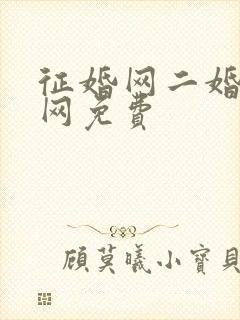 征婚网二婚
网免费
顾莫曦小寶貝